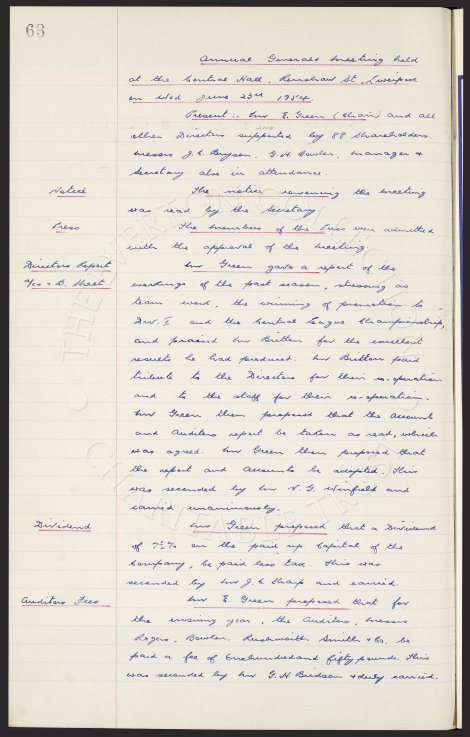 63
Annual General Meeting held
at the Central Hall, Renshaw St, Liverpool
on Wed June 23rd 1954.
Present :- Mr E. Green (Chair) and all
other Directors supported by 88 Shareholders.
Messrs J. C. G. H. Manager &
Secretary also in attendance.
Notice
The notice convening the meeting
was read by the Secretary.
Press
The members of the Press were admitted
with the approval of the meeting.
Directors Report
a/cs & B. Sheet
Mr Green gave a report of the
workings of the past season, stressing as
team work, the winning of promotion to
Div. I and the Central League Championship,
and praised Mr Britton for the excellent
results he had produced. Mr Britton paid
tribute to the Directors for their co-operation
and to the staff for their co-operation.
Mr Green then proposed that the Accounts
and Auditors report be taken as read, which
was agreed. Mr Green then proposed that
the report and Accounts be adopted. This
was seconded by Mr N. G. Winfield and
carried unanimously.
Dividend
Mr Green proposed that a Dividend
of 7½% on the paid up Capital of the
Company, be paid less tax. This was
seconded by Mr J. C. Sharp and carried.
Auditors Fees
Mr E. Green proposed that for
the ensuing year, the Auditors, Messrs
Rogers, Bowler, Rushworth Smith & Co. be
paid a fee of One hundred and fifty pounds. This
was seconded by Mr G. H. & duly carried.
THE EVERTON COLLECTION
CHARITABLE TRUST